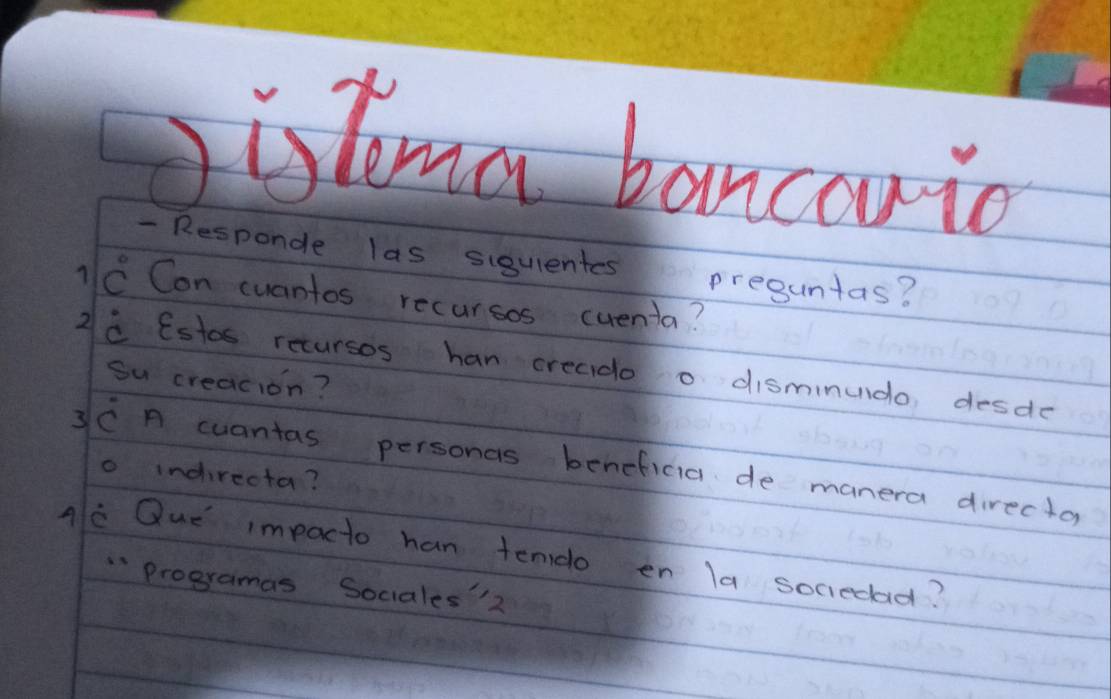 Sistema bancario
- Responde las siguientes preguntas?
1 ¿ Con cuantos recursos cuenta?
2 ¿ Estos recursos han crecido o disminuido desde
su creación?
3 ¿ A cuantas personas beneficia de manera directa
o indirecta?
4 ¿ Qué impacto han tenido en la sociedad?
"programas Sociales" 2